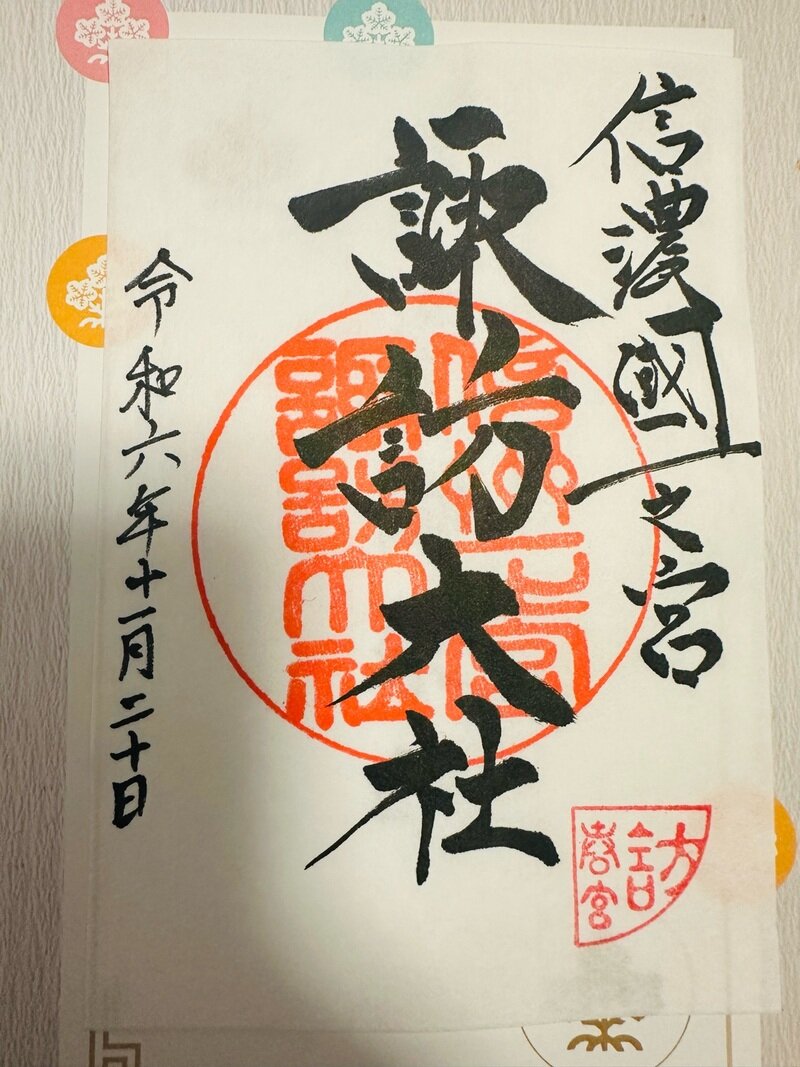 信濃國一之宮
諏訪大社
令和六年十一月二十日
信州一之宮
諏訪大社
訪
春宮